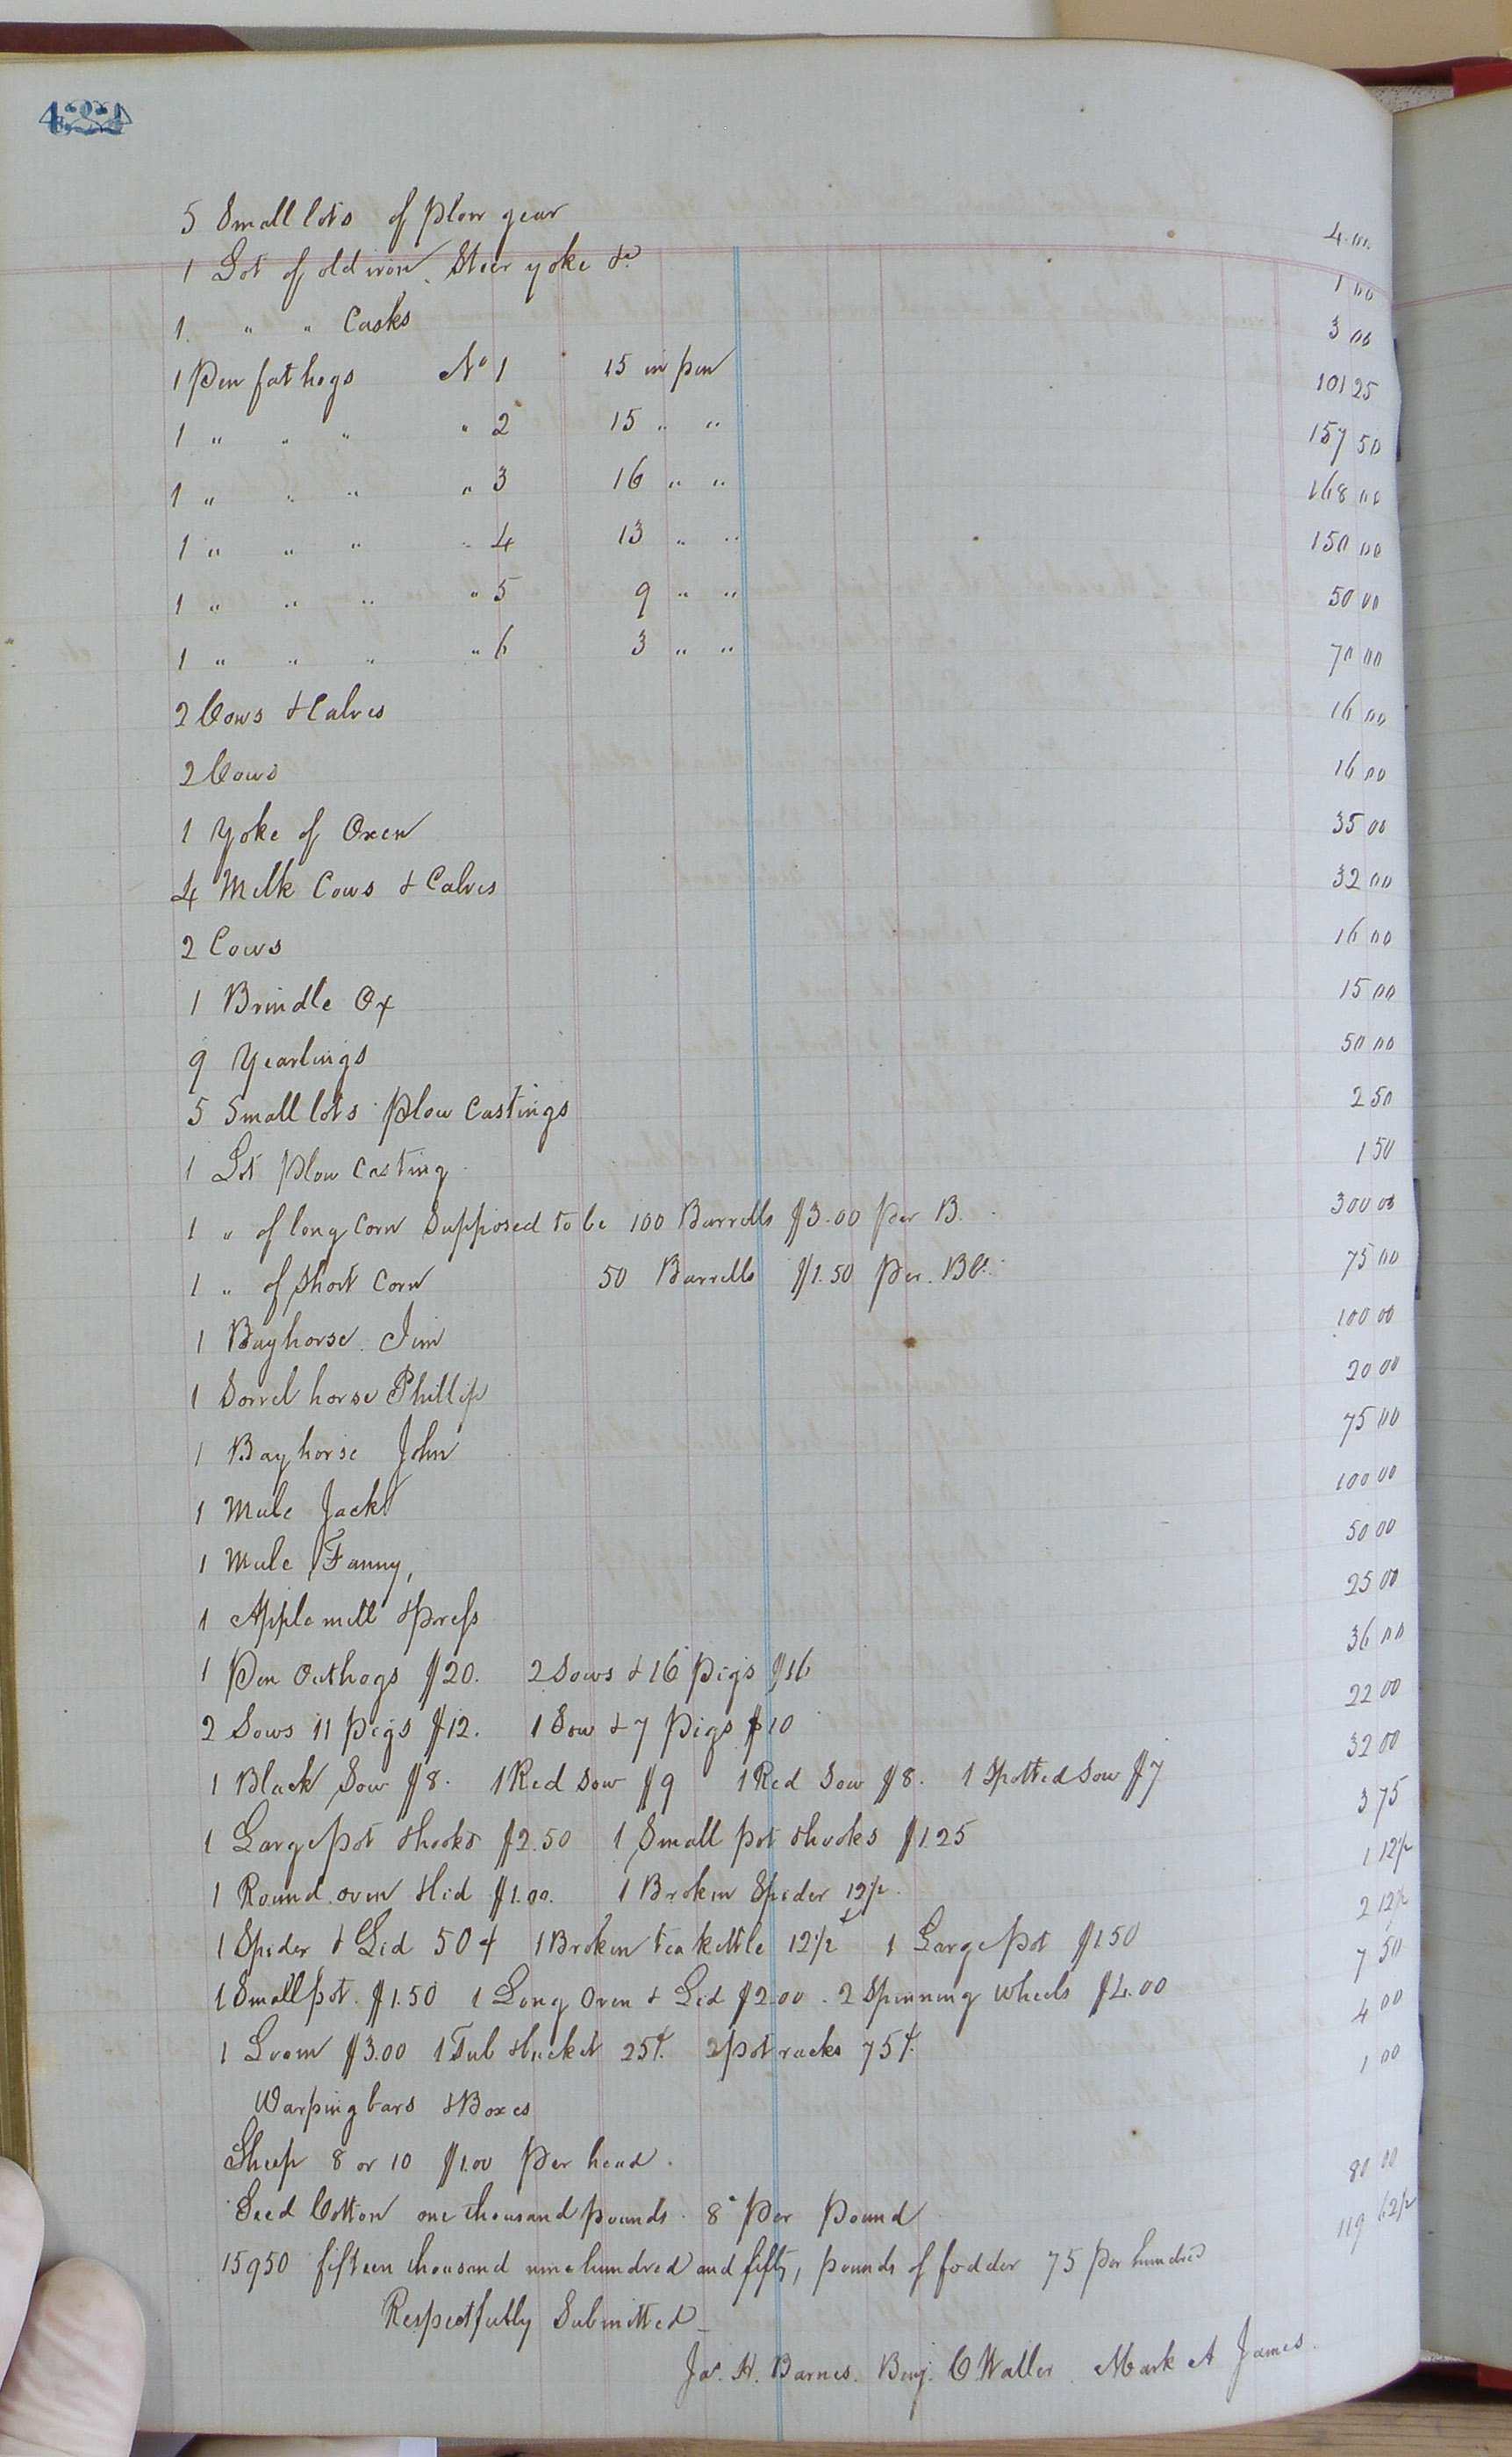 424
5 Small lots of plow gear 4.00
1 Lot of old iron Steer yoke &c 1 00
1 " " Casks 3 00
1 Pen fat hogs No 1 15 in pen 101 25
1 " " " " 2 15 " " 157 50
1 " " " " 3 16 " " 168 00
1 " " " " 4 13 " " 150 00
1 " " " " 5 9 " " 50 00
1 " " " " 6 3 " " 70 00
2 Cows & Calves 16 00
2 Cows 16 00
1 Yoke of Oxen 35 00
4 Milk Cows & Calves 32 00
2 Cows 16 00
1 Brindle Ox 15 00
9 Yearlings 50 00
5 Small lots Plow Castings 2 50
1 Lot Plow Casting 1 50
1 " of long Corn Supposed to be 100 Barrells $3.00 Per B. 300 00
1 " of Short Corn 50 Barrells $1.50 Per. Bl. 75 00
1 Bay horse Jim 100 00
1 Sorrel horse Phillip 20 00
1 Bay horse John 75 00
1 Mule Jack 100 00
1 Mule Fanny, 50 00
1 Apple mill & press 25 00
1 Pen Outhogs $20. 2 Sows & 16 Pigs $16 36 00
2 Sows 11 Pigs $12. 1 Sow & 7 Pigs $10 22 00
1 Black Sow $8. 1 Red Sow $9 1 Red Sow $8. 1 Spotted Sow $7 32 00
1 Large Pot & hooks $2.50 1 Small pot & hooks $1.25 3 75
1 Round oven & lid $1.00. 1 Broken Spider 12½ 1 12½
1 Spider & Lid 50¢ 1 Broken tea kettle 12½¢ 1 Large Pot $1.50 2 12½
1 Small pot. $1.50 1 Long Oven & Lid $2.00. 2 Spinning Wheels $4.00 7 50
1 Loom $3.00 1 Tub & bucket 25¢. 2 pot racks 75¢. 4 00
Warping bars & Boxes 1 00
Sheep 8 or 10 $1.00 Per head.
Seed Cotton one thousand pounds. 8c Per Pound 80 00
15950 fifteen thousand nine hundred and fifty, pounds of fodder 75 per hundred 119 62½
Respectfully Submitted
Jas. H. Barnes. Benj. C Waller. Mark A James.